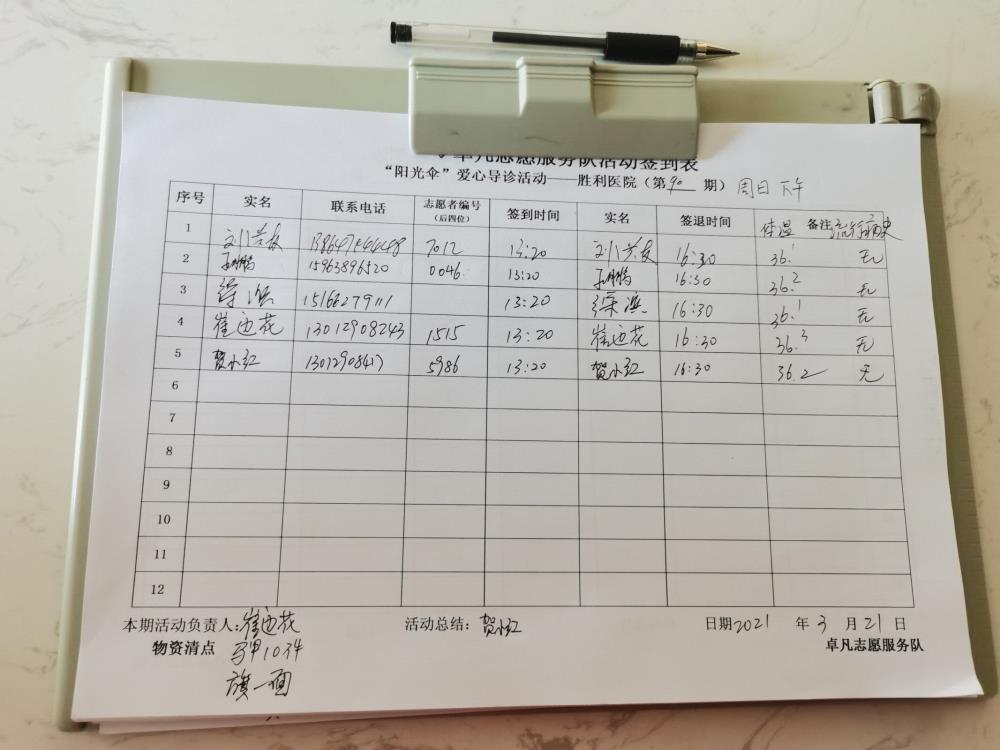 卓凡志愿服务队活动签到表
“阳光伞”爱心导诊活动——胜利医院（第90期）周日下午
序号 实名 联系电话 志愿者编号（后四位） 签到时间 实名 签退时间 体温 备注 流行病史
1 7012 13:20 16:30 36.1 无
2 15963896520 0046 13:20 16:30 36.2 无
3 15166279111 13:20 16:30 36.1 无
4 崔迎花 13012908243 1515 13:20 崔迎花 16:30 36.3 无
5 贺小红 5986 13:20 贺小红 16:30 36.2 无
6
7
8
9
10
11
12
本期活动负责人：崔迎花 活动总结：贺小红 日期2021年3月21日
物资清点 马甲10件 卓凡志愿服务队
旗一面